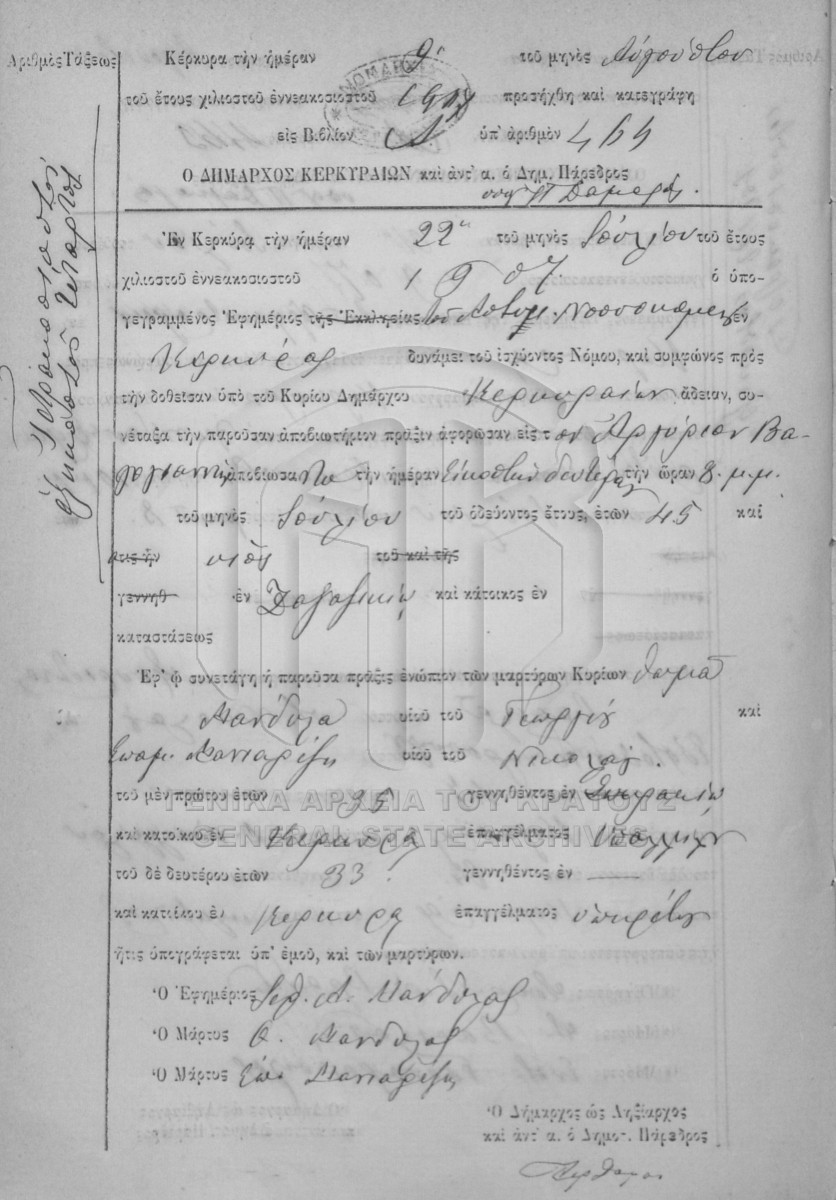 Ἀριθμὸς Τάξεως
Τετρακοσιοστὸς
ἑξηκοστὸς τέταρτος
Κέρκυρα τὴν ἡμέραν 9 τοῦ μηνὸς Αὐγούστου
τοῦ ἔτους χιλιοστοῦ ἐννεακοσιοστοῦ 1907 προσήχθη καὶ κατεγράφη
εἰς Βιβλίον Α ὑπ' ἀριθμὸν 464
Ο ΔΗΜΑΡΧΟΣ ΚΕΡΚΥΡΑΙΩΝ καὶ ἀντ' α. ὁ Δημ. Πάρεδρος
Ἐν Κερκύρᾳ τὴν ἡμέραν 22 τοῦ μηνὸς Ἰουλίου τοῦ ἔτους
χιλιοστοῦ ἐννεακοσιοστοῦ 1907 ὁ ὑπο-
γεγραμμένος Ἐφημέριος τῆς Ἐκκλησίας τοῦ Νοσοκομείου ἐν
Κερκύρας δυνάμει τοῦ ἰσχύοντος Νόμου, καὶ συμφώνος πρὸς
τὴν δοθεῖσαν ὑπὸ τοῦ Κυρίου Δημάρχου Κερκυραίων ἄδειαν, συ-
νέταξα τὴν παροῦσαν ἀποβιωτήριον πρᾶξιν ἀφορῶσαν εἰς τ ον Ἀργύριον Βα-
λογιάννη ἀποβιώσαντα τὴν ἡμέραν Εἰκοστὴν δευτέραν τὴν ὥραν 8. μ.μ.
τοῦ μηνὸς Ἰουλίου τοῦ ὁδεύοντος ἔτους, ἐτῶν 45 καὶ
στις ἦν υἱὸς τοῦ καὶ τῆς
γεννηθ ἐν καὶ κάτοικος ἐν
καταστάσεως
Ἐφ' ᾧ συνετάγη ἡ παροῦσα πρᾶξις ἐνώπιον τῶν μαρτύρων Κυρίων Θωμᾶ
Μάνδυλα υἱοῦ τοῦ Γεωργίου καὶ
Ἐπαμ. Μανιαρίζη υἱοῦ τοῦ Νικολάου.
τοῦ μὲν πρώτου ἐτῶν 35 γεννηθέντος ἐν
καὶ κατοίκου ἐν Κέρκυρᾳ ἐπαγγέλματος
τοῦ δὲ δευτέρου ἐτῶν 33 γεννηθέντος ἐν
καὶ κατοίκου ἐν Κέρκυρᾳ ἐπαγγέλματος ὑπηρέτου
ἥτις ὑπογράφεται ὑπ' ἐμοῦ, καὶ τῶν μαρτύρων.
Ὁ Ἐφημέριος Ἱερ. Α. Μάνδυλας
Ὁ Μάρτυς Θ. Μάνδυλας
Ὁ Μάρτυς Ἐπ. Μανιαρίζης
Ὁ Δήμαρχος ὡς Ληξίαρχος
καὶ ἀντ' α. ὁ Δημοτ. Πάρεδρος
ΓΕΝΙΚΑ ΑΡΧΕΙΑ ΤΟΥ ΚΡΑΤΟΥΣ
GENERAL STATE ARCHIVES